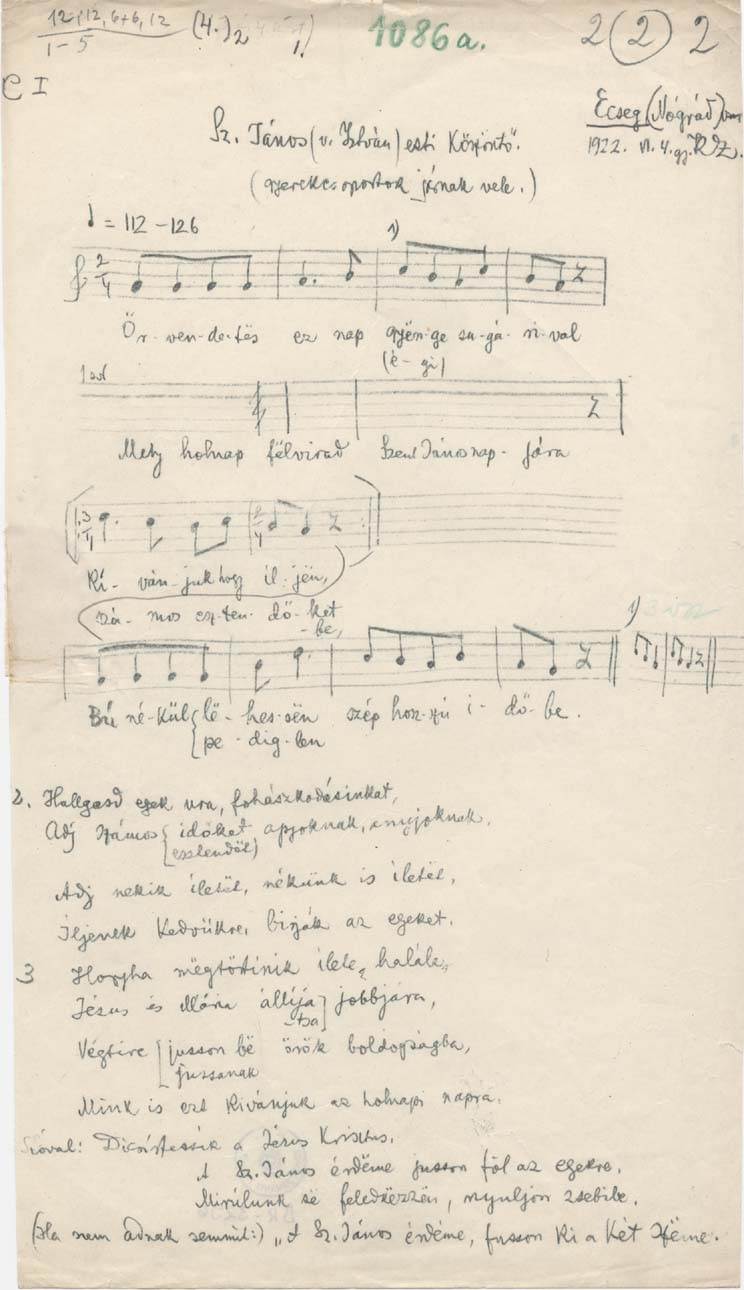 12+12, 6+6, 12
1-5
(4.)2
1086a.
2 (2) 2
C I
Ecseg (Nógrád) vm
1922. VI. 4. gy. KZ.
Sz. János (v. István) esti köszöntő.
(gyerekcsoportok járnak vele.)
= 112 - 126
1)
2/4
Ör-ven-de-tës ez nap gyën-ge su-gá-ri-val
(é-gi)
Mely holnap fëlvirad Szent János nap-jára
3/4 2/4
Kí-ván-juk hogy íl-jën,
szá-mos esz-ten-dő-ket
-be,
1)
Bú né-kül lë-hes-sën szép hosz-szú i-dő-be.
pe-dig-len
2. Hallgasd egek ura, fohászkodásinkat,
Adj számos időket apjoknak, anyjoknak.
esztendőt)
Adj nekik íletët, nékünk is íletët,
Íljenek kedvükre, bírják az egeket.
3 Hogyha mëgtörtínik ílete, halála,
Jézus és Mária állíja jobbjára,
-tsa
Végtire jusson bë örök boldogságba,
jussanak
Mink is ezt kivánjuk az holnapi napra.
Szóval: Dicsírtessík a Jézus Krisztus.
A Sz. János érdëme jusson föl az egekre,
Mirúlunk së feledkëzzën, nyuljon zsebibe.
(Ha nem adnak semmit:) „A Sz. János érdéme, fusson ki a két szëme.